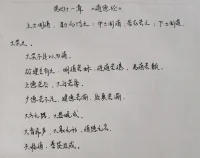 第四十一章 《道德论》
上士闻道，勤而行之；中士闻道，若存若亡；下士闻道，
大笑之。
不笑不足以为道。
故建言有之：明道若昧，进道若退，夷道若颣。
上德若谷，大白若辱，
广德若不足，建德若偷，质真若渝。
大方无隅，大器晚成。
大音希声，大象无形，道隐无名。
夫唯道，善贷且成。